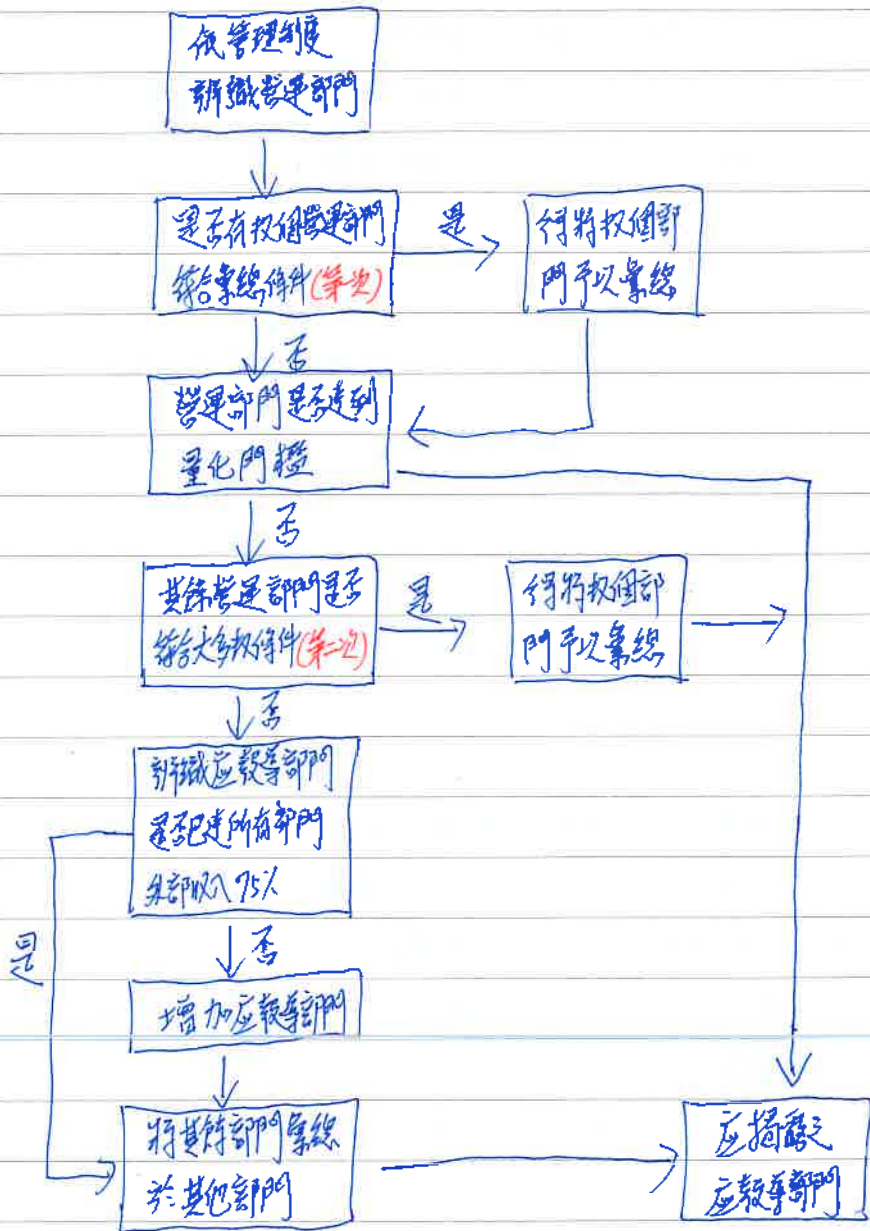 依管理制度
辨識營運部門
是否有數個營運部門
符合彙總條件(第一次)
是
得將數個部
門予以彙總
否
營運部門是否達到
量化門檻
否
其餘營運部門是否
符合大多數條件(第二次)
是
得將數個部
門予以彙總
否
辨識应報導部門
是否已達所有部門
外部收入75%
是
否
增加应報導部門
將其餘部門彙總
於其他部門
应揭露之
应報導部門